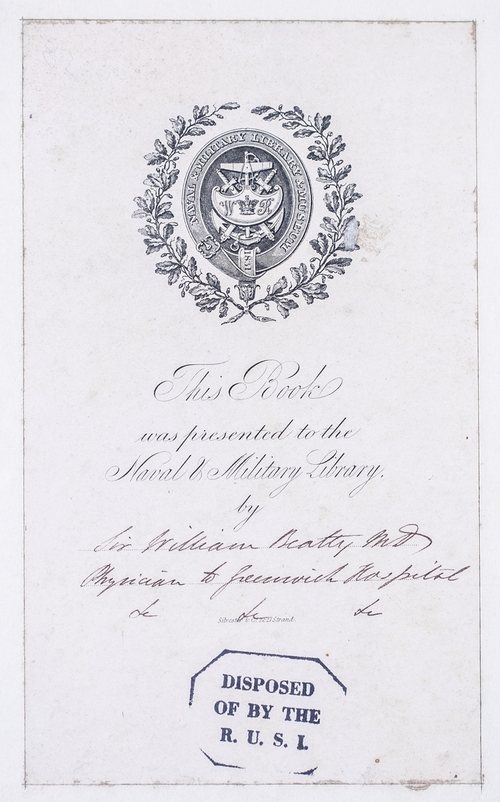 NAVAL & MILITARY LIBRARY & MUSEUM
W R
1831
This Book
was presented to the
Naval & Military Library.
by
Sir William Beatty MD
Physician to Greenwich Hospital
&c &c &c
Strand.
DISPOSED
OF BY THE
R. U. S. I.